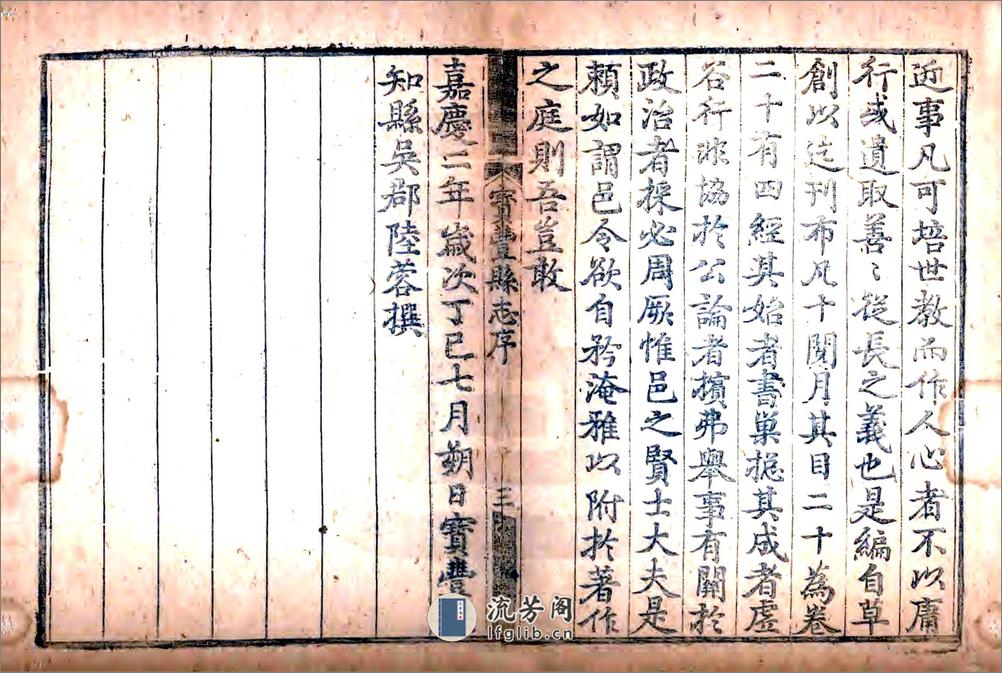 近事凡可培世教而作人心者不以庸
行或遺取善〻從長之義也是編自草
創以迄刊布凡十閱月其目二十為卷
二十有四經其始者書巢揔其成者虛
谷行非協於公論者擯弗舉事有關於
政治者採必周厥惟邑之賢士大夫是
賴如謂邑令欲自矜淹雅以附於著作
之庭則吾豈敢
寳豐縣志序
三
嘉慶二年歲次丁巳七月朔日寶豐
知縣吳郡陸蓉撰
流芳阁
lfglib.cn